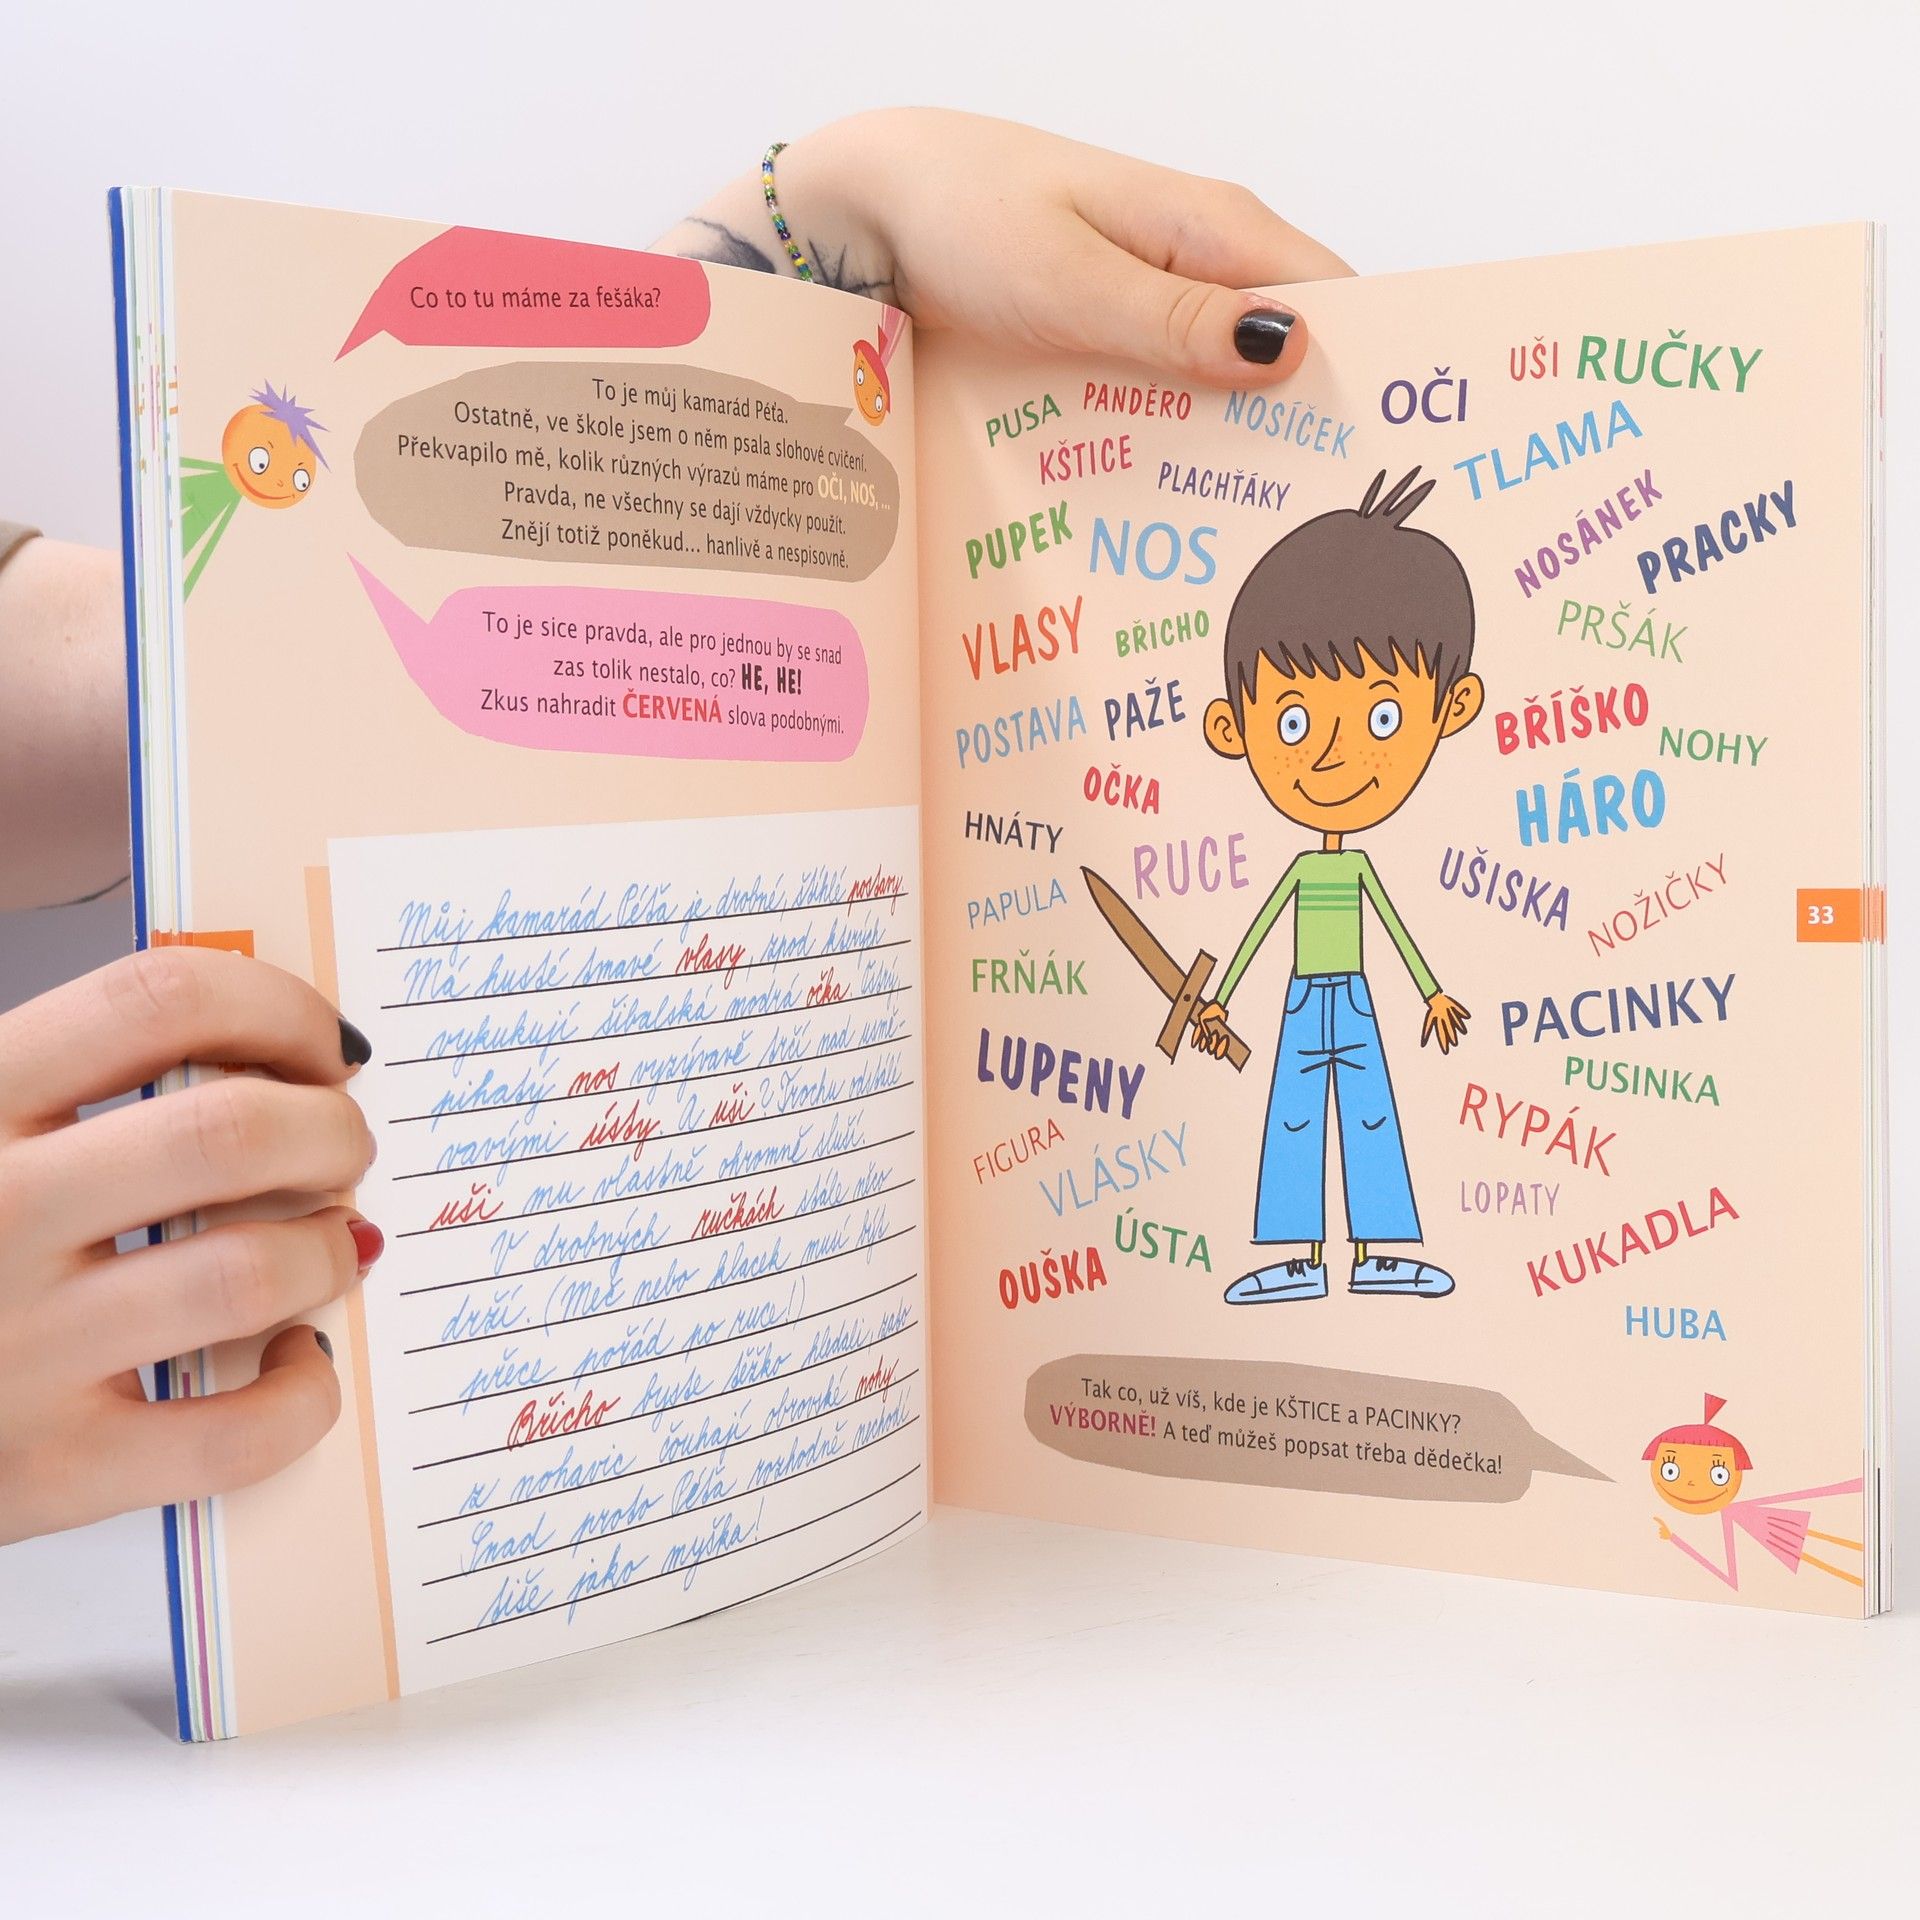 Co to tu máme za fešáka?
To je můj kamarád Péťa.
Ostatně, ve škole jsem o něm psala slohové cvičení.
Překvapilo mě, kolik různých výrazů máme pro OČI, NOS, ...
Pravda, ne všechny se dají vždycky použít.
Znějí totiž poněkud... hanlivě a nespisovně.
To je sice pravda, ale pro jednou by se snad
zas tolik nestalo, co? HE, HE!
Zkus nahradit ČERVENÁ slova podobnými.
Můj kamarád Péťa je drobné, štíhlé postavy.
Má husté tmavé vlasy, zpod kterých
vykukují šibalská modrá očka. Ostrý,
pihatý nos vyzývavě trčí nad usmě-
vavými ústy. A uši? Trochu odstálé
uši mu vlastně ohromně sluší.
V drobných ručkách stále něco
drží. (Meč nebo klacek musí být
přece pořád po ruce!)
Břicho byste těžko hledali, zato
z nohavic čouhají obrovské nohy.
Snad proto Péťa rozhodně nechodí
tiše jako myška!
PUSA PANDĚRO NOSÍČEK OČI UŠI RUČKY
KŠTICE PLACHŤÁKY TLAMA
PUPEK NOS NOSÁNEK PRACKY
VLASY BŘICHO PRŠÁK
POSTAVA PAŽE BŘÍŠKO NOHY
OČKA HÁRO
HNÁTY RUCE UŠISKA NOŽIČKY
PAPULA
FRŇÁK PACINKY
LUPENY PUSINKA
FIGURA VLÁSKY RYPÁK
LOPATY
OUŠKA ÚSTA KUKADLA
HUBA
33
Tak co, už víš, kde je KŠTICE a PACINKY?
VÝBORNĚ! A teď můžeš popsat třeba dědečka!